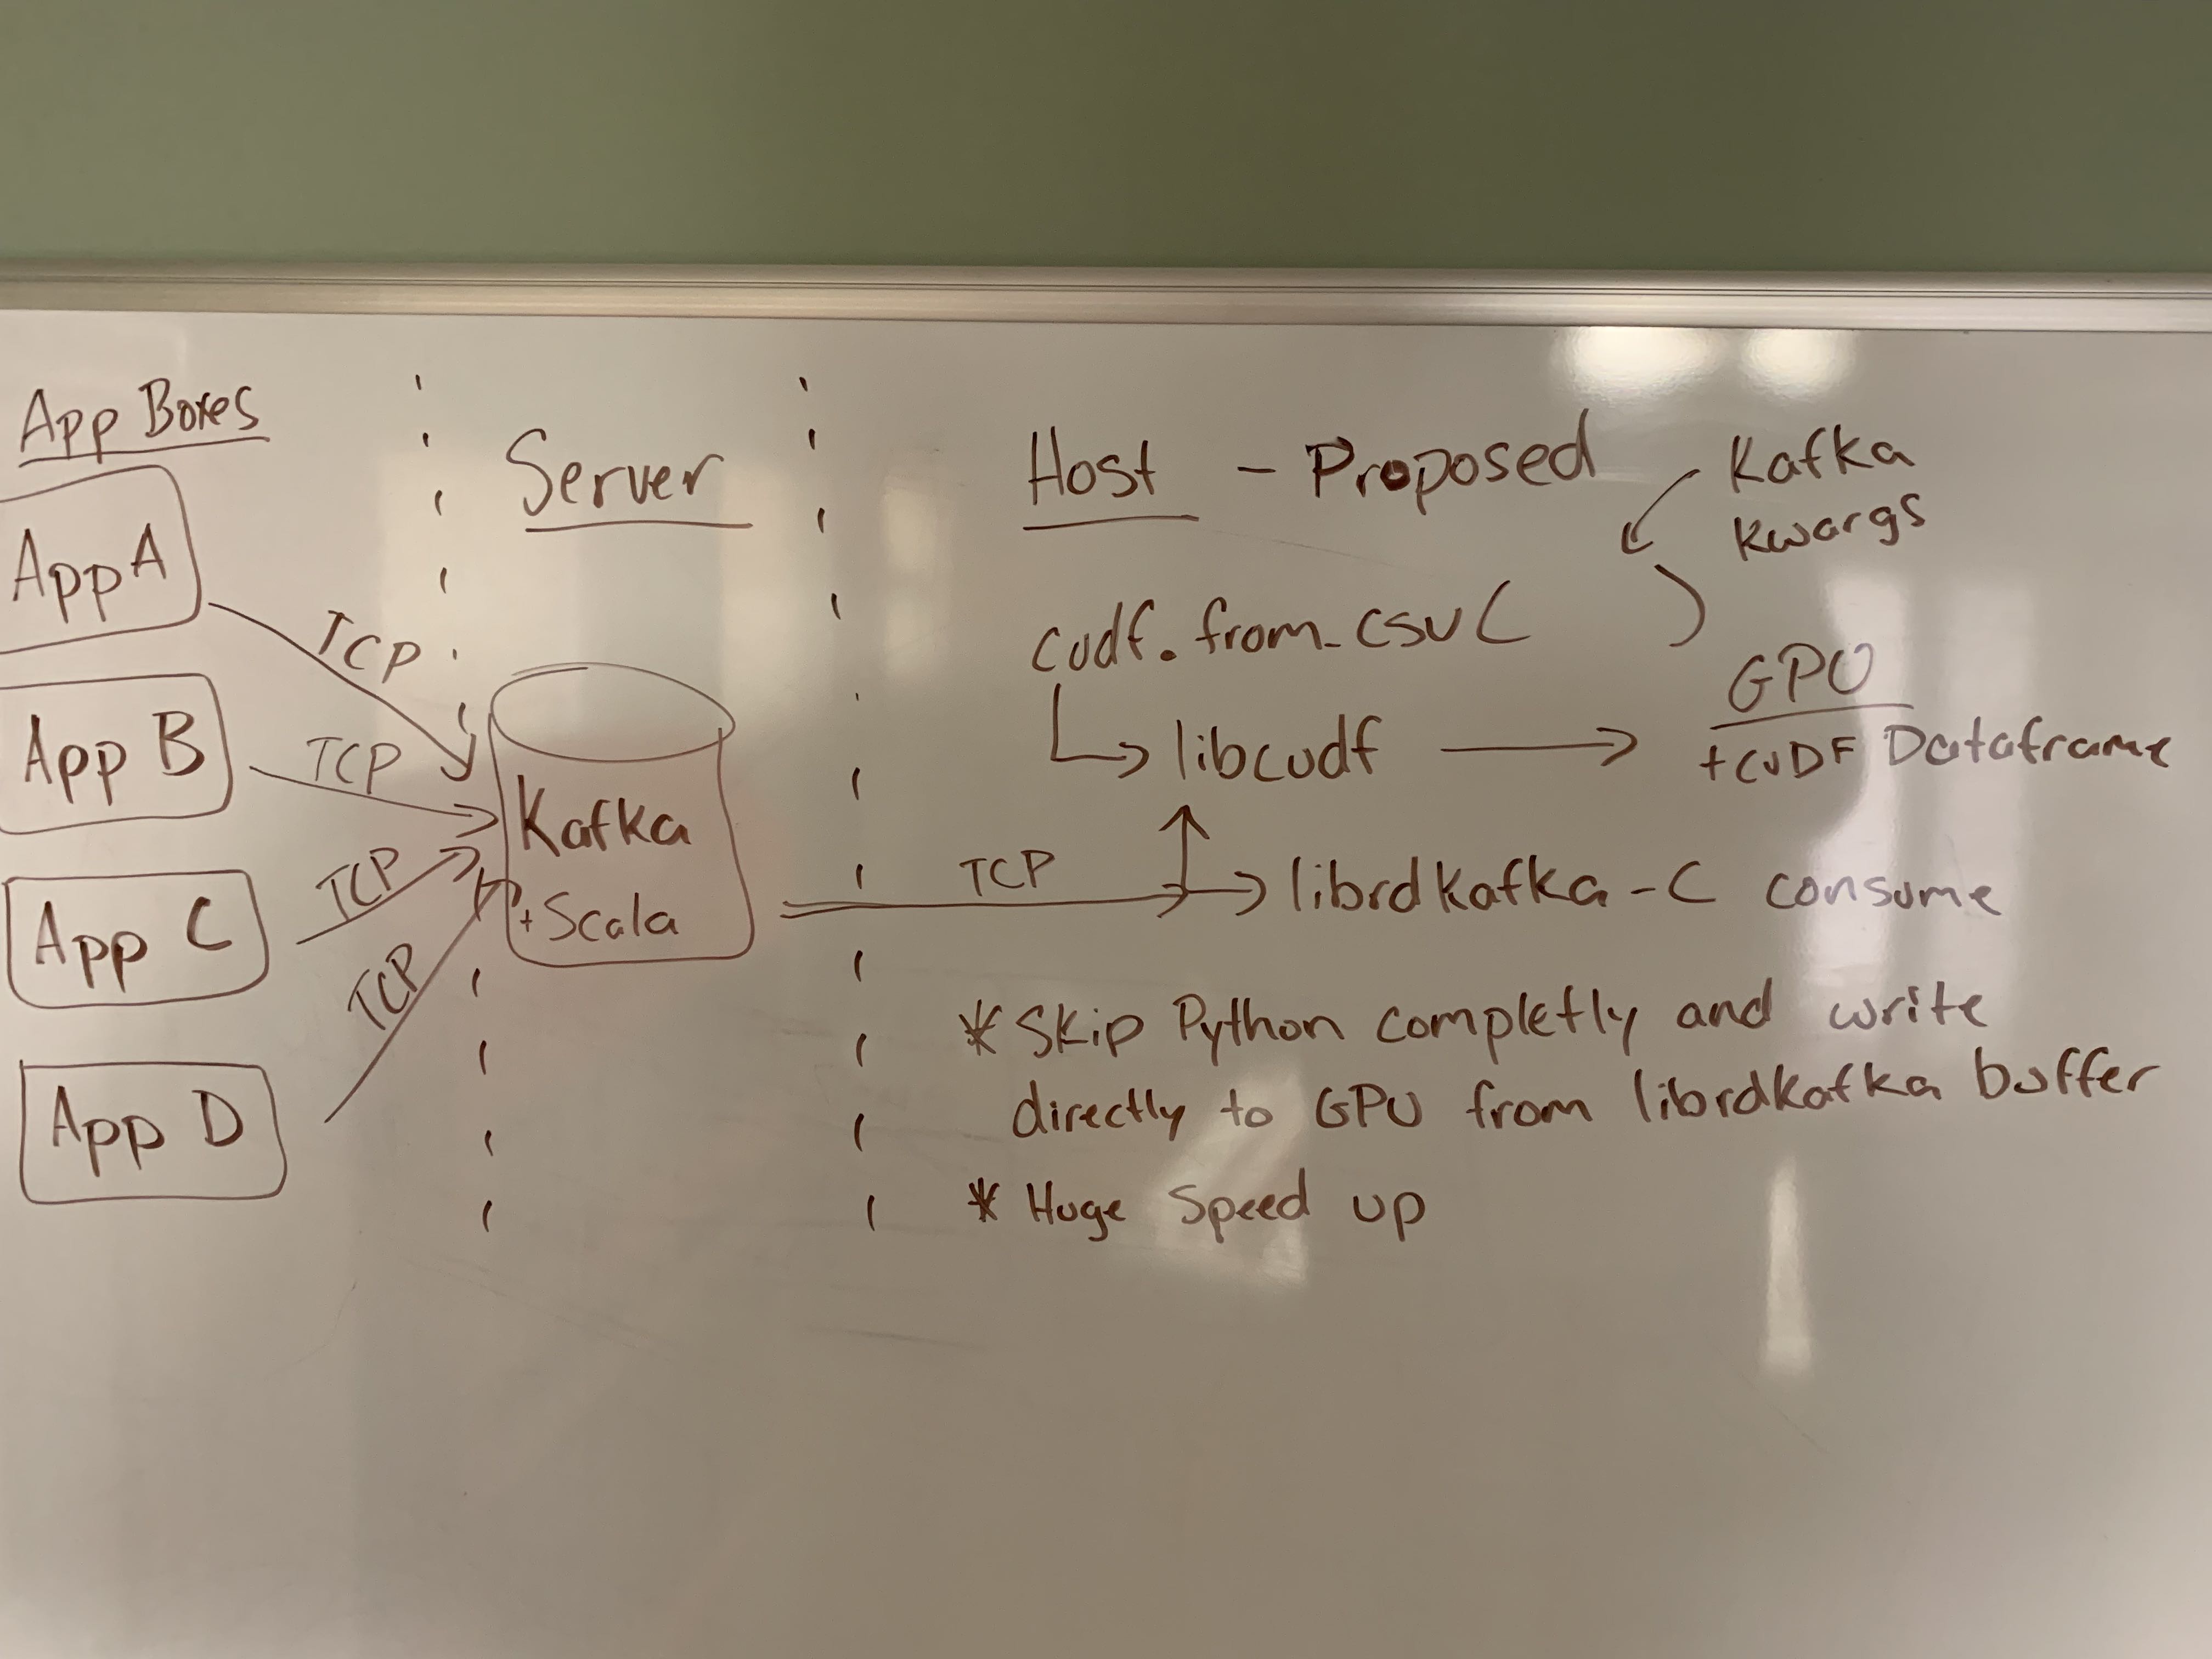 App Boxes
App A
App B
App C
App D
TCP
TCP
TCP
TCP
Server
Kafka
+ Scala
TCP
Host - Proposed
Kafka
kwargs
cudf.from_csv( )
libcudf
GPU
+ cuDF Dataframe
librdkafka - C consume
* Skip Python completly and write
directly to GPU from librdkafka buffer
* Huge Speed up